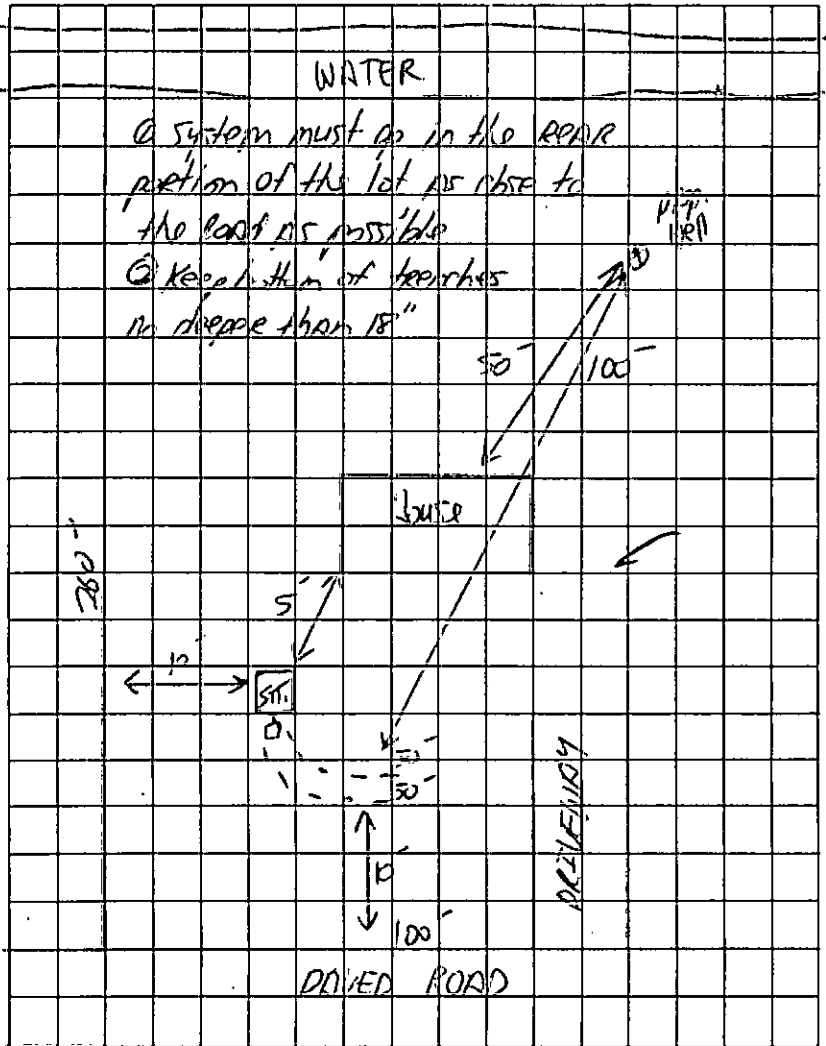 WATER
① System must go in the REAR
portion of the lot as close to
the road as possible
② Keep bottom of trenches
no deeper than 18"
well
50'
100'
house
260'
5'
10'
S.T.
50'
50'
10'
100'
DRIVEWAY
PAVED ROAD